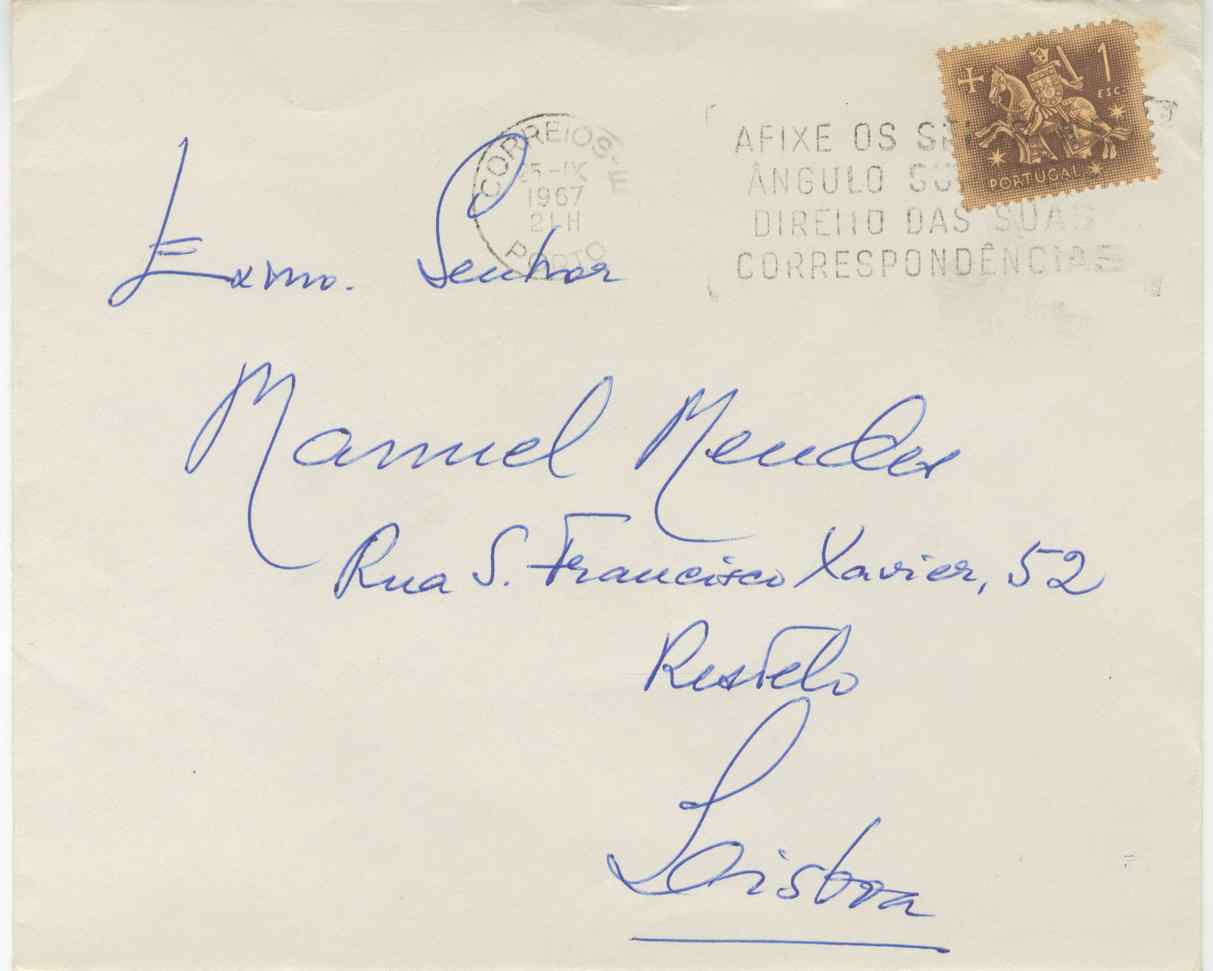 1
ESC.
PORTUGAL
CORREIOS-E
25-IX
1967
21H
PORTO
AFIXE OS
ÂNGULO
DIREITO DAS SUAS
CORRESPONDÊNCIAS
Exmo. Senhor
Manuel Mendes
Rua S. Francisco Xavier, 52
Restelo
Lisboa